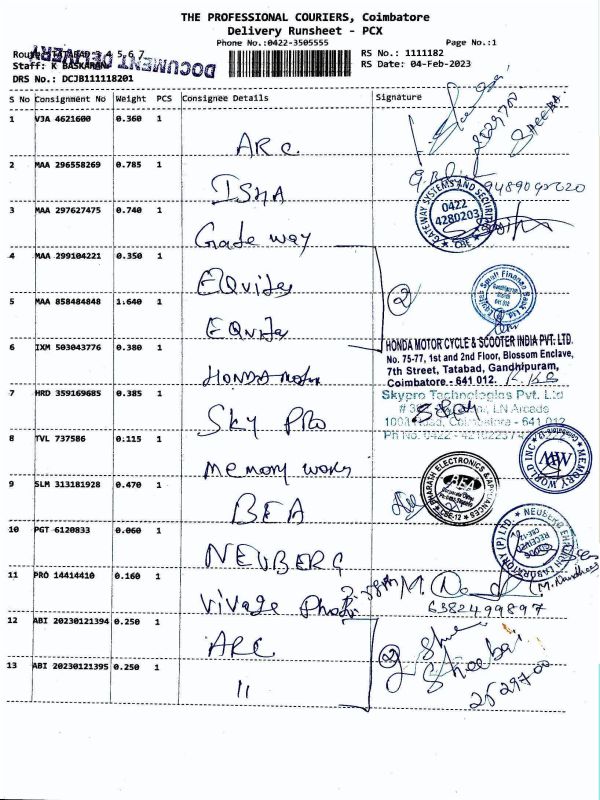 THE PROFESSIONAL COURIERS, Coimbatore
Delivery Runsheet - PCX
Phone No.:0422-3505555 Page No.:1
Route: TATABAD 3 4 5 6 7
Staff: K BASKARAN
DRS No.: DCJB111118201
DOCUMENT DELIVERY
RS No.: 1111182
RS Date: 04-Feb-2023
S No Consignment No Weight PCS Consignee Details Signature
1 VJA 4621600 0.360 1 ARC
2529700 SHEEBA
2 MAA 296558269 0.785 1 ISHA
3 MAA 297627475 0.740 1 Gate way
GATEWAY SYSTEMS AND SECURITY
0422
4280203
CBE
4 MAA 299104221 0.350 1 EQuitas
2
5 MAA 858484848 1.640 1 EQuitas
Small Finance Bank Ltd
6 IXM 503043776 0.380 1 HONDA Motor
HONDA MOTOR CYCLE & SCOOTER INDIA PVT. LTD.
No. 75-77, 1st and 2nd Floor, Blossom Enclave,
7th Street, Tatabad, Gandhipuram,
Coimbatore - 641 012.
7 HRD 359169685 0.385 1 Sky PRO
Skypro Technologies Pvt. Ltd
LN Arcade
Road, Coimbatore - 641 012
8 TVL 737586 0.115 1 Memory works
MEMORY WORLD INC
MW
9 SLM 313181928 0.470 1 BEA
BHARATH ELECTRONICS & APPLIANCES
BEA
10 PGT 6120833 0.060 1 NEUBERG
NEUBERG EHRLICH LABORATORY (P) LTD.
11 PRO 14414410 0.160 1 Vivage Photo
6382499897
12 ABI 20230121394 0.250 1 ARC
2 Sheeba
13 ABI 20230121395 0.250 1 11
2529700